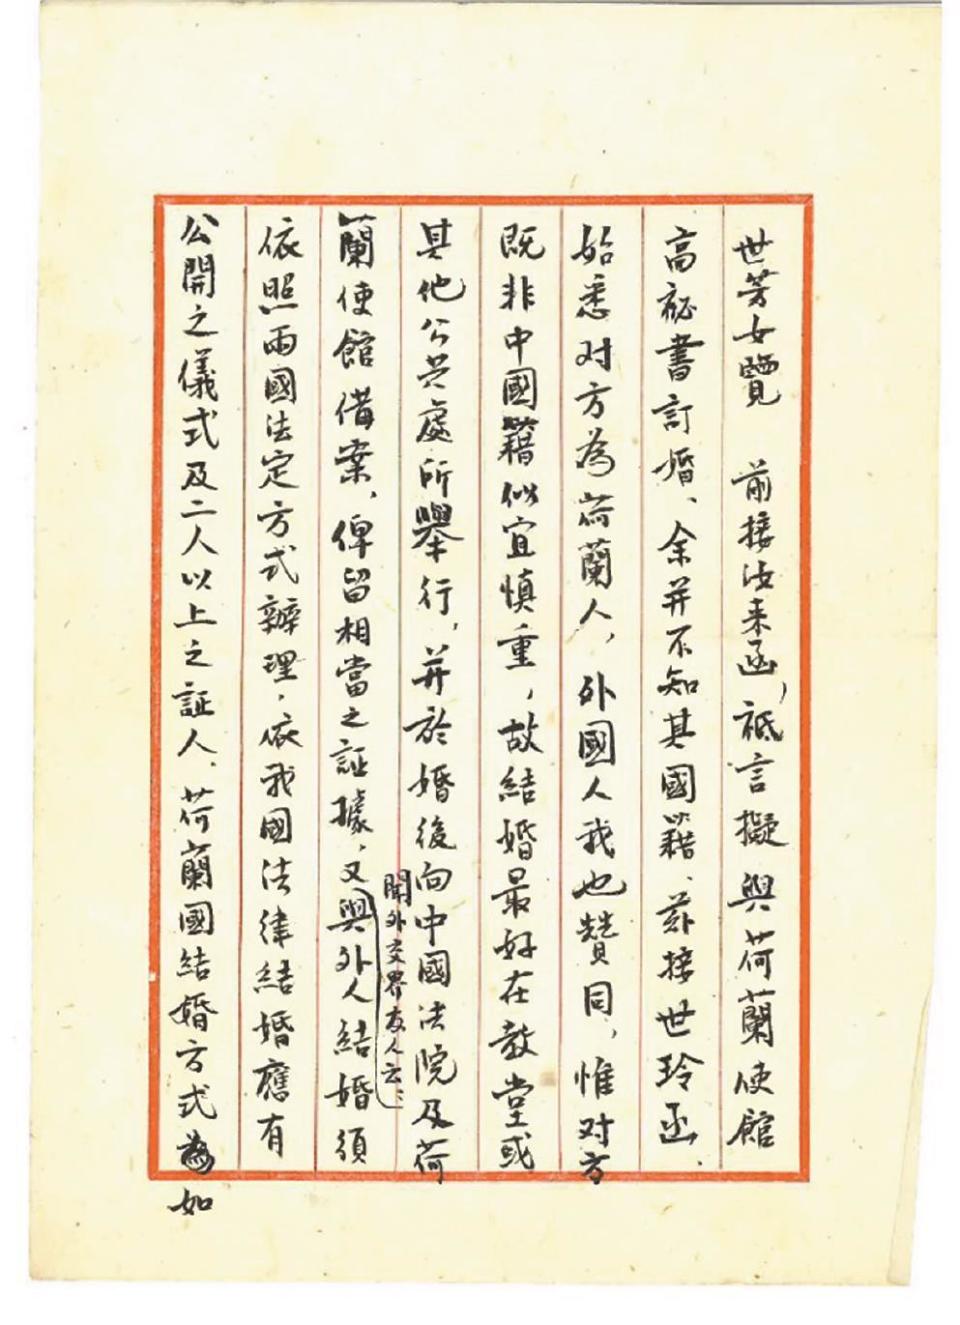 世芳女覽　前接汝来函，祗言擬與荷蘭使館
高秘書訂婚、余并不知其國籍、茲接世玲函、
始悉对方為荷蘭人，外國人我也赞同，惟对方
既非中國籍似宜慎重，故結婚最好在教堂或
其他公共處所舉行，并於婚後向中國法院及荷
蘭使館備案、俾留相當之証據、又
聞外交界友人云：
與外人結婚須
依照兩國法定方式辦理、依我國法律結婚應有
公開之儀式及二人以上之証人、荷蘭國結婚方式為如